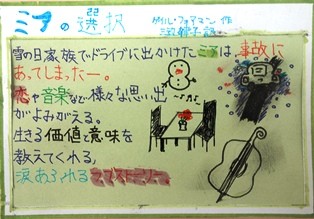 ミアの選択
ゲイル・フォアマン 作
三辺律子 訳
雪の日家族でドライブに出かけたミアは、事故に
あってしまったー。
恋や音楽など様々な思い出
がよみがえる。
生きる価値と意味を
教えてくれる、
涙あふれるラブストーリー